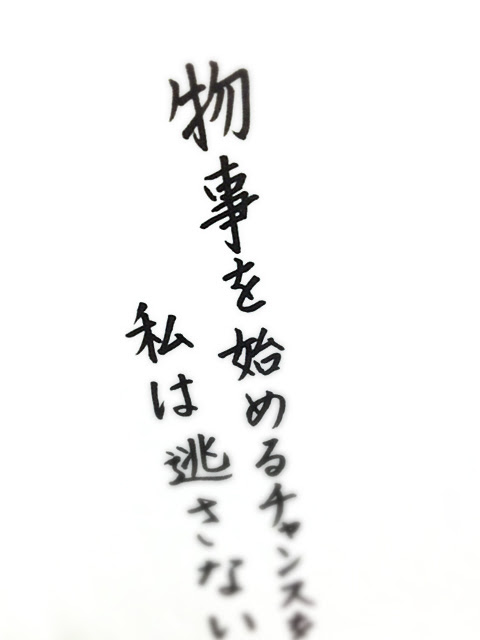 物事を始めるチャンスを
私は逃さない